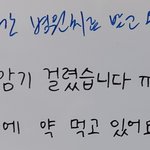 간 병원치료 받고
감기 걸렸습니다 ㅠ
에 약 먹고 있어요